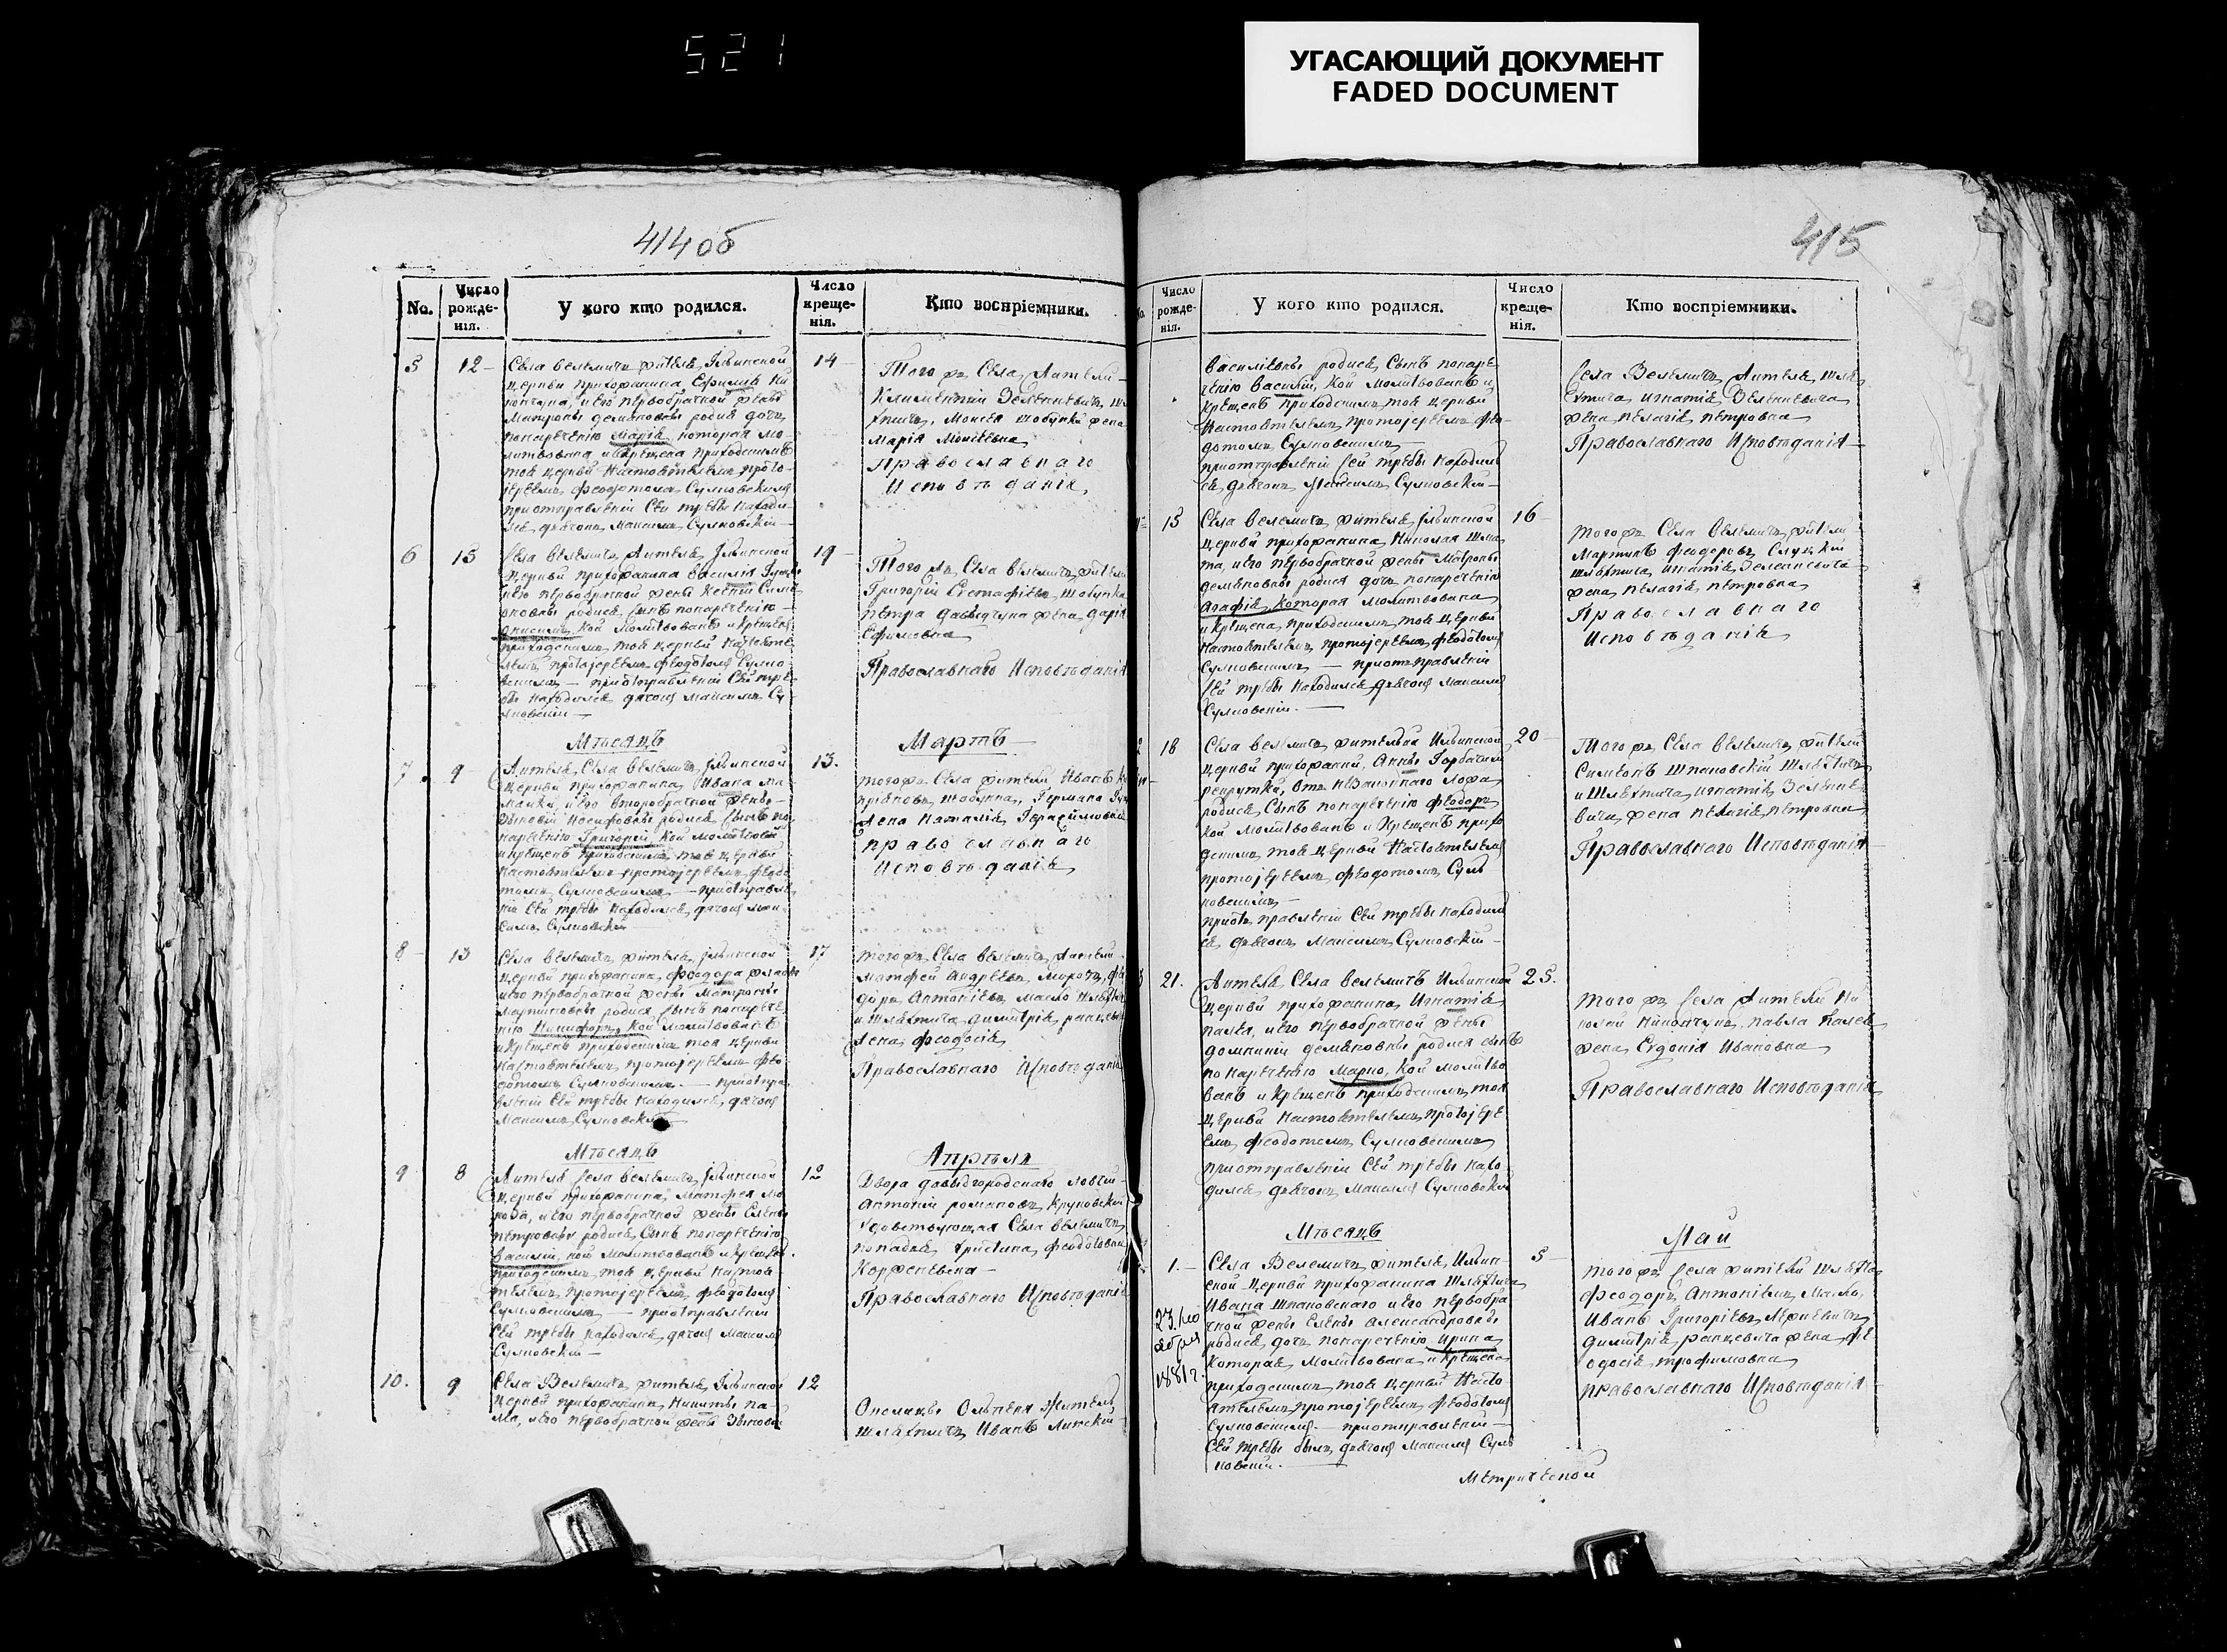 521
УГАСАЮЩИЙ ДОКУМЕНТ
FADED DOCUMENT
414об
No.
Число рожде-нія.
У кого кто родился.
Число креще-нія.
Кто воспріемники.
5
12
Села велемичъ житель Ильинской
церкви прихожанина Ефима
и его первобрачной жены
Матроны демяновны родис дочъ
понаречению Марія которая мо
литвована и крещена приходскимъ
тоя церкви Настоятелемъ прото
іереемъ феодотомъ Сулковскимъ
приотправленіи Сей требы находи
лся дячокъ Максимъ Сулковскій
14
Того жъ Села Жители
Климентій
Моисея жена
Марія Моисѣевна
Православнаго
Исповѣданія
6
15
Села велемичъ Житель Ильинской
Церкви прихожанина василія
и его первобрачной жены Ксеніи
родися сынъ понаречению
Анисимъ кой молитвованъ и крещенъ
приходскимъ тоя церкви Настояте
лемъ протоіереемъ феодотомъ Сулко
вскимъ приотправленіи Сей тре
бы находился дячокъ Максимъ Су
лковскій
19
Того жъ Села велемичъ жители
Григорій Евстафіевъ
петра жена дарія
Ефимовна
Православнаго Исповѣданія
Мѣсяцъ
Мартъ
7
9
Житель Села велемичъ Ильинской
церкви прихожанина Ивана
и его второбрачной жены
родися сынъ по
наречению Григорій кой молитвован
и крещенъ приходскимъ тоя церкви
Настоятелемъ протоіереемъ феодо
томъ Сулковскимъ приотправле
ніи Сей требы находился дячокъ Мак
симъ Сулковскій
13.
того жъ Села жители Иванъ
Германа
жена Наталія Герасимовна
православнаго
Исповѣданія
8
13
Села велемичъ житель Ильинской
церкви прихожанина феодора
и его первобрачной жены Матроны
мартиновны родися сынъ понарече
нію Никифоръ кой молитвованъ
и крещенъ приходскимъ тоя церкви
Настоятелемъ протоіереемъ фео
дотомъ Сулковскимъ приотпра
вленіи Сей требы находился дячокъ
Максимъ Сулковскій
17
того жъ Села велемичъ жители
матфей Андреевъ
Антоніевъ Масло
и Шляхтича димитрія
жена феодосія
Православнаго Исповѣданія
Мѣсяцъ
Апрѣля
9
8
Житель села велемичъ Ильинской
церкви прихожанина матфея мо
роза, и его первобрачной жены Елены
петровны родися Сынъ понаречению
василій кой молитвованъ и крещенъ
приходскимъ тоя церкви Настоя
телемъ протоіереемъ феодотомъ
Сулковскимъ приотправленіи
Сей требы находился дячокъ Максимъ
Сулковскій
12
Двора давидгородскаго ловчій
Антоній романовъ Круковскій
Села велемичъ
попадья христина феодотовна
Православнаго Исповѣданія
10.
9
Села Велемичъ житель Ильинской
церкви прихожанина Никиты
и его первобрачной жены
12
Околицы Ольпеня Житель
шляхтичъ Иванъ Липскій
415
No.
Число рожде-нія.
У кого кто родился.
Число креще-нія.
Кто воспріемники.
василіевны родися Сынъ понаре
ченію василій, кой молитвованъ и
крещенъ приходскимъ тоя церкви
Настоятелемъ протоіереемъ фео
дотомъ Сулковскимъ
приотправленіи Сей требы находил
ся дячокъ Максимъ Сулковскій
Села Велемичъ Житель Шля
хтича игнатія Зеленкевича
жена пелагія петровна
Православнаго Исповѣданія
15
Села велемичъ житель Ильинской
церкви прихожанина Николая
и его первобрачной жены Матроны
демяновны родися дочъ понаречению
Агафія которая молитвована
и крещена приходскимъ тоя церкви
Настоятелемъ протоіереемъ феодотомъ
Сулковскимъ приотправленіи
Сей требы находился дячокъ Максимъ
Сулковскій.
16
того жъ Села велемичъ жители
Мартинъ феодоровъ Слуцкій
шляхтича игнатія Зеленкевича
жена пелагія петровна
Православнаго
Исповѣданія
18
Села велемичъ жителька Ильинской
церкви прихожанки Анны Горбачихи
рекрутки, отъ незаконнаго ложа
родися Сынъ понаречению феодоръ
кой молитвованъ и крещенъ прихо
дскимъ тоя церкви Настоятелемъ
протоіереемъ феодотомъ Сул
ковскимъ
приотправленіи Сей требы находил
ся дячокъ Максимъ Сулковскій
20
Того жъ Села велемичъ жители
Симеонъ Шпаковскій Шляхтичъ
и Шляхтича игнатія Зеленке
вича жена пелагія петровна
Православнаго Исповѣданія
21.
Житель Села велемичъ Ильинской
церкви прихожанина Игнатія
и его первобрачной жены
домникіи демяновны родися сынъ
понаречению Марко, кой молитво
ванъ и крещенъ приходскимъ тоя
церкви Настоятелемъ протоіере
емъ феодотомъ Сулковскимъ
приотправленіи Сей требы нахо
дился дячокъ Максимъ Сулковскій
25.
того жъ Села Жители Ни
колай павла
жена Евдокія Ивановна
Православнаго Исповѣданія
Мѣсяцъ
Май
1.
23. но
ября
1881 г.
Села Велемичъ житель Ильин
ской церкви прихожанина Шляхтича
Ивана Шпаковскаго и его первобра
чной жены Елены Александровны
родися дочъ понаречению Ирина
которая молитвована и крещена
приходскимъ тоя церкви Насто
ятелемъ протоіереемъ феодотомъ
Сулковскимъ приотправленіи
Сей требы былъ дячокъ Максимъ Сул
ковскій.
5
того жъ Села жители Шляхта
феодоръ Антоніевъ Масло,
Иванъ Григоріевъ
димитрія жена фе
одосія трофимовна
православнаго Исповѣданія
Метрической